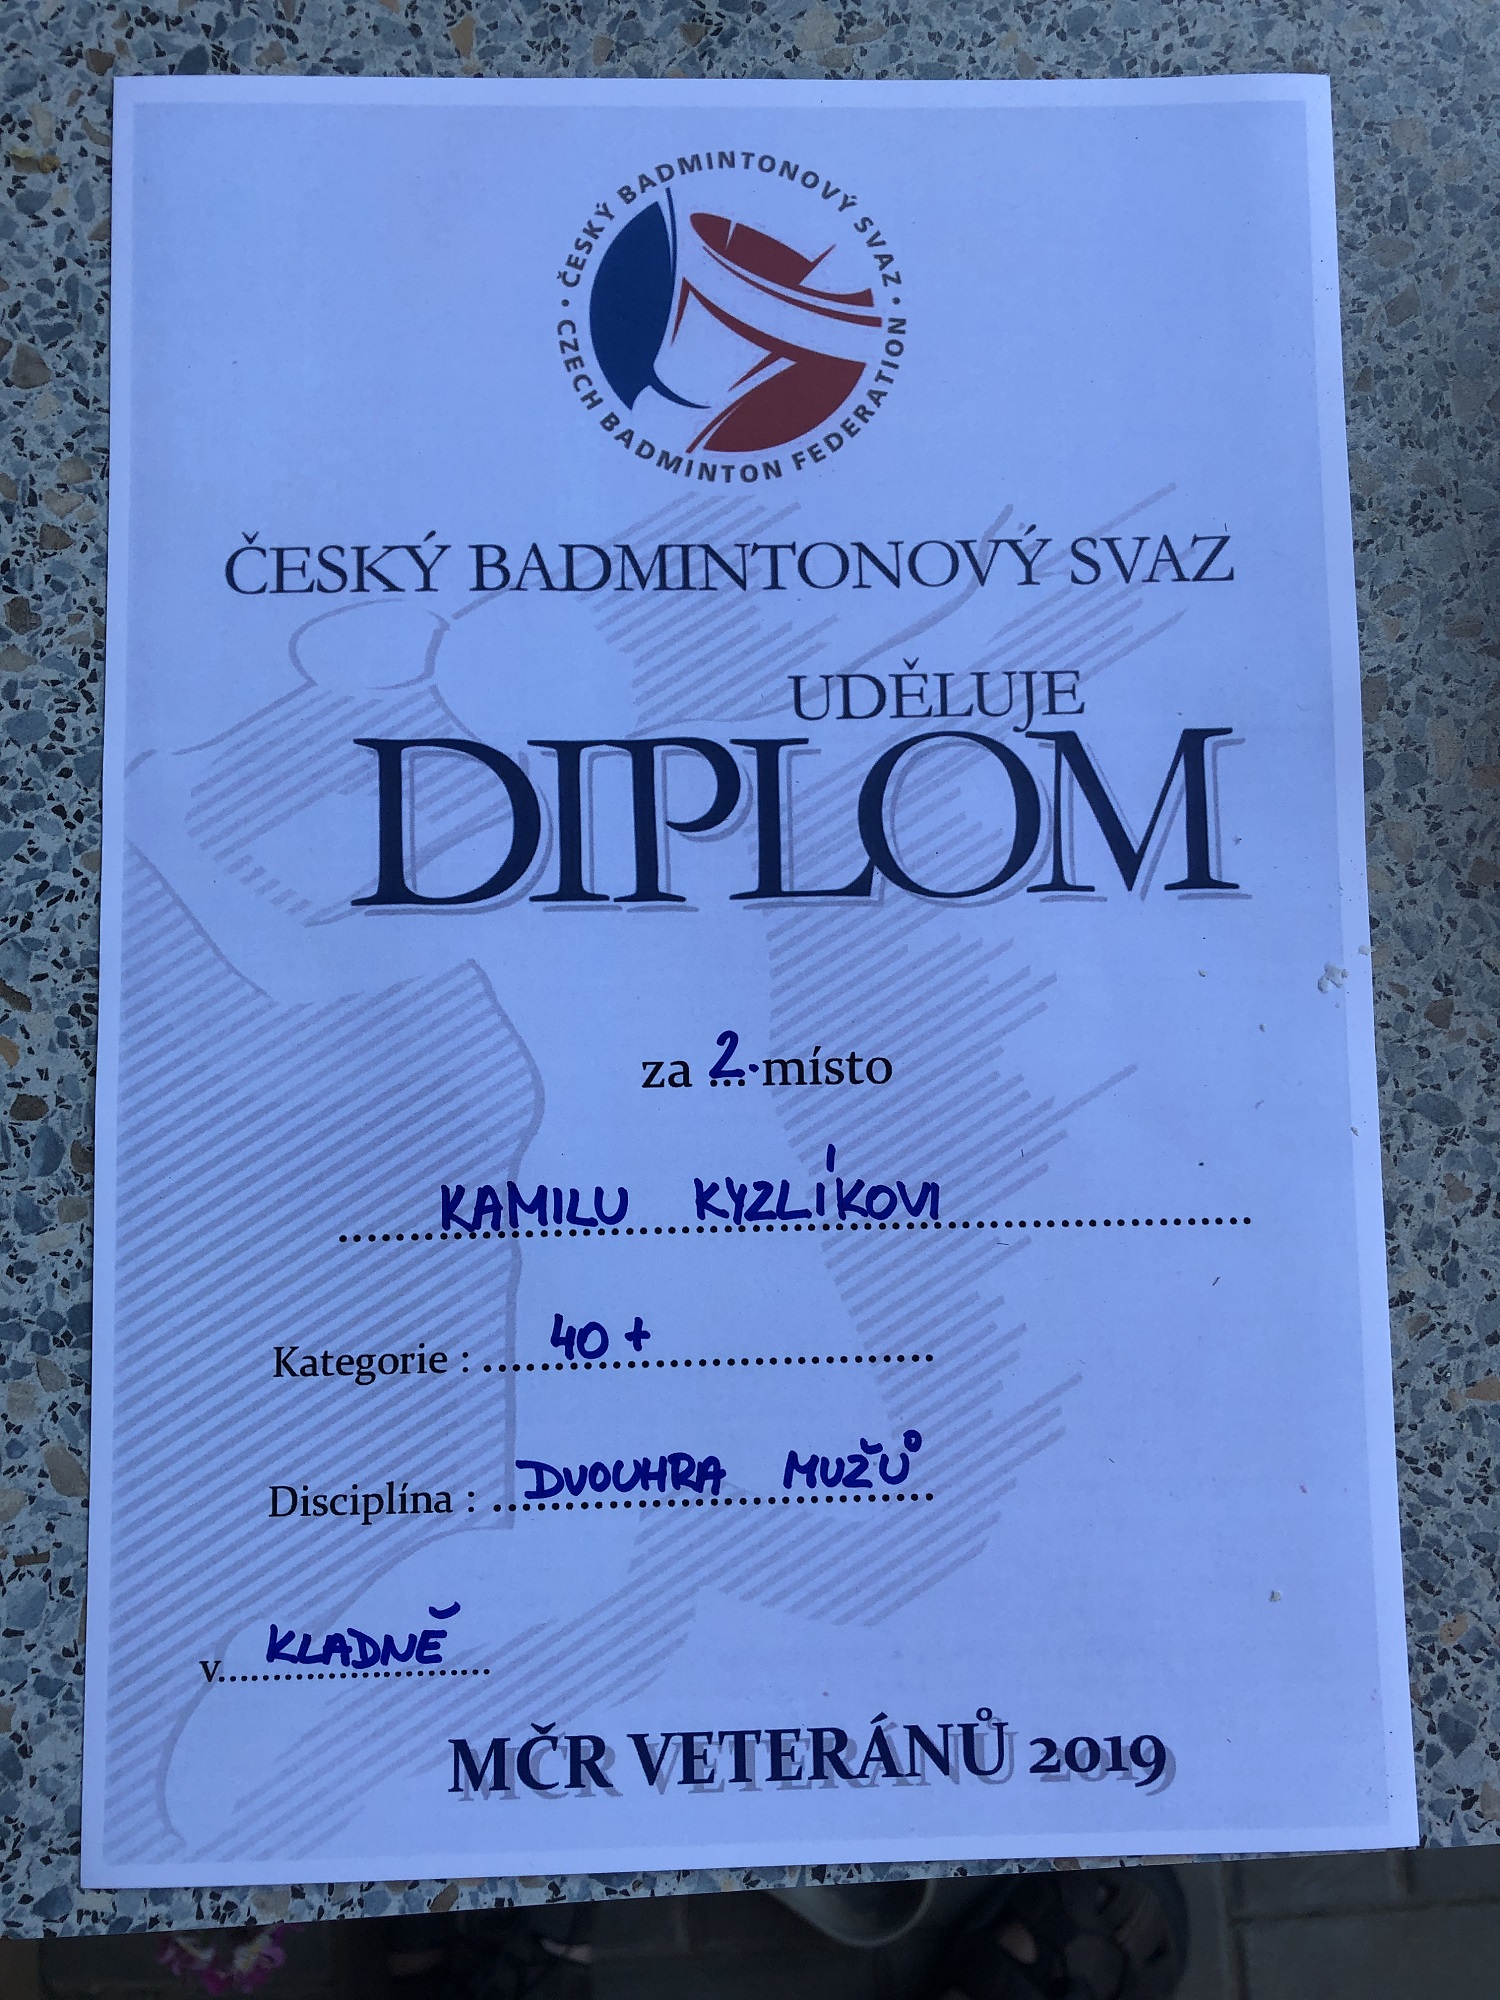 ČESKÝ BADMINTONOVÝ SVAZ
CZECH BADMINTON FEDERATION
ČESKÝ BADMINTONOVÝ SVAZ
UDĚLUJE
DIPLOM
za 2. místo
KAMILU KYZLÍKOVI
Kategorie : 40+
Disciplína : DVOUHRA MUŽŮ
v KLADNĚ
MČR VETERÁNŮ 2019